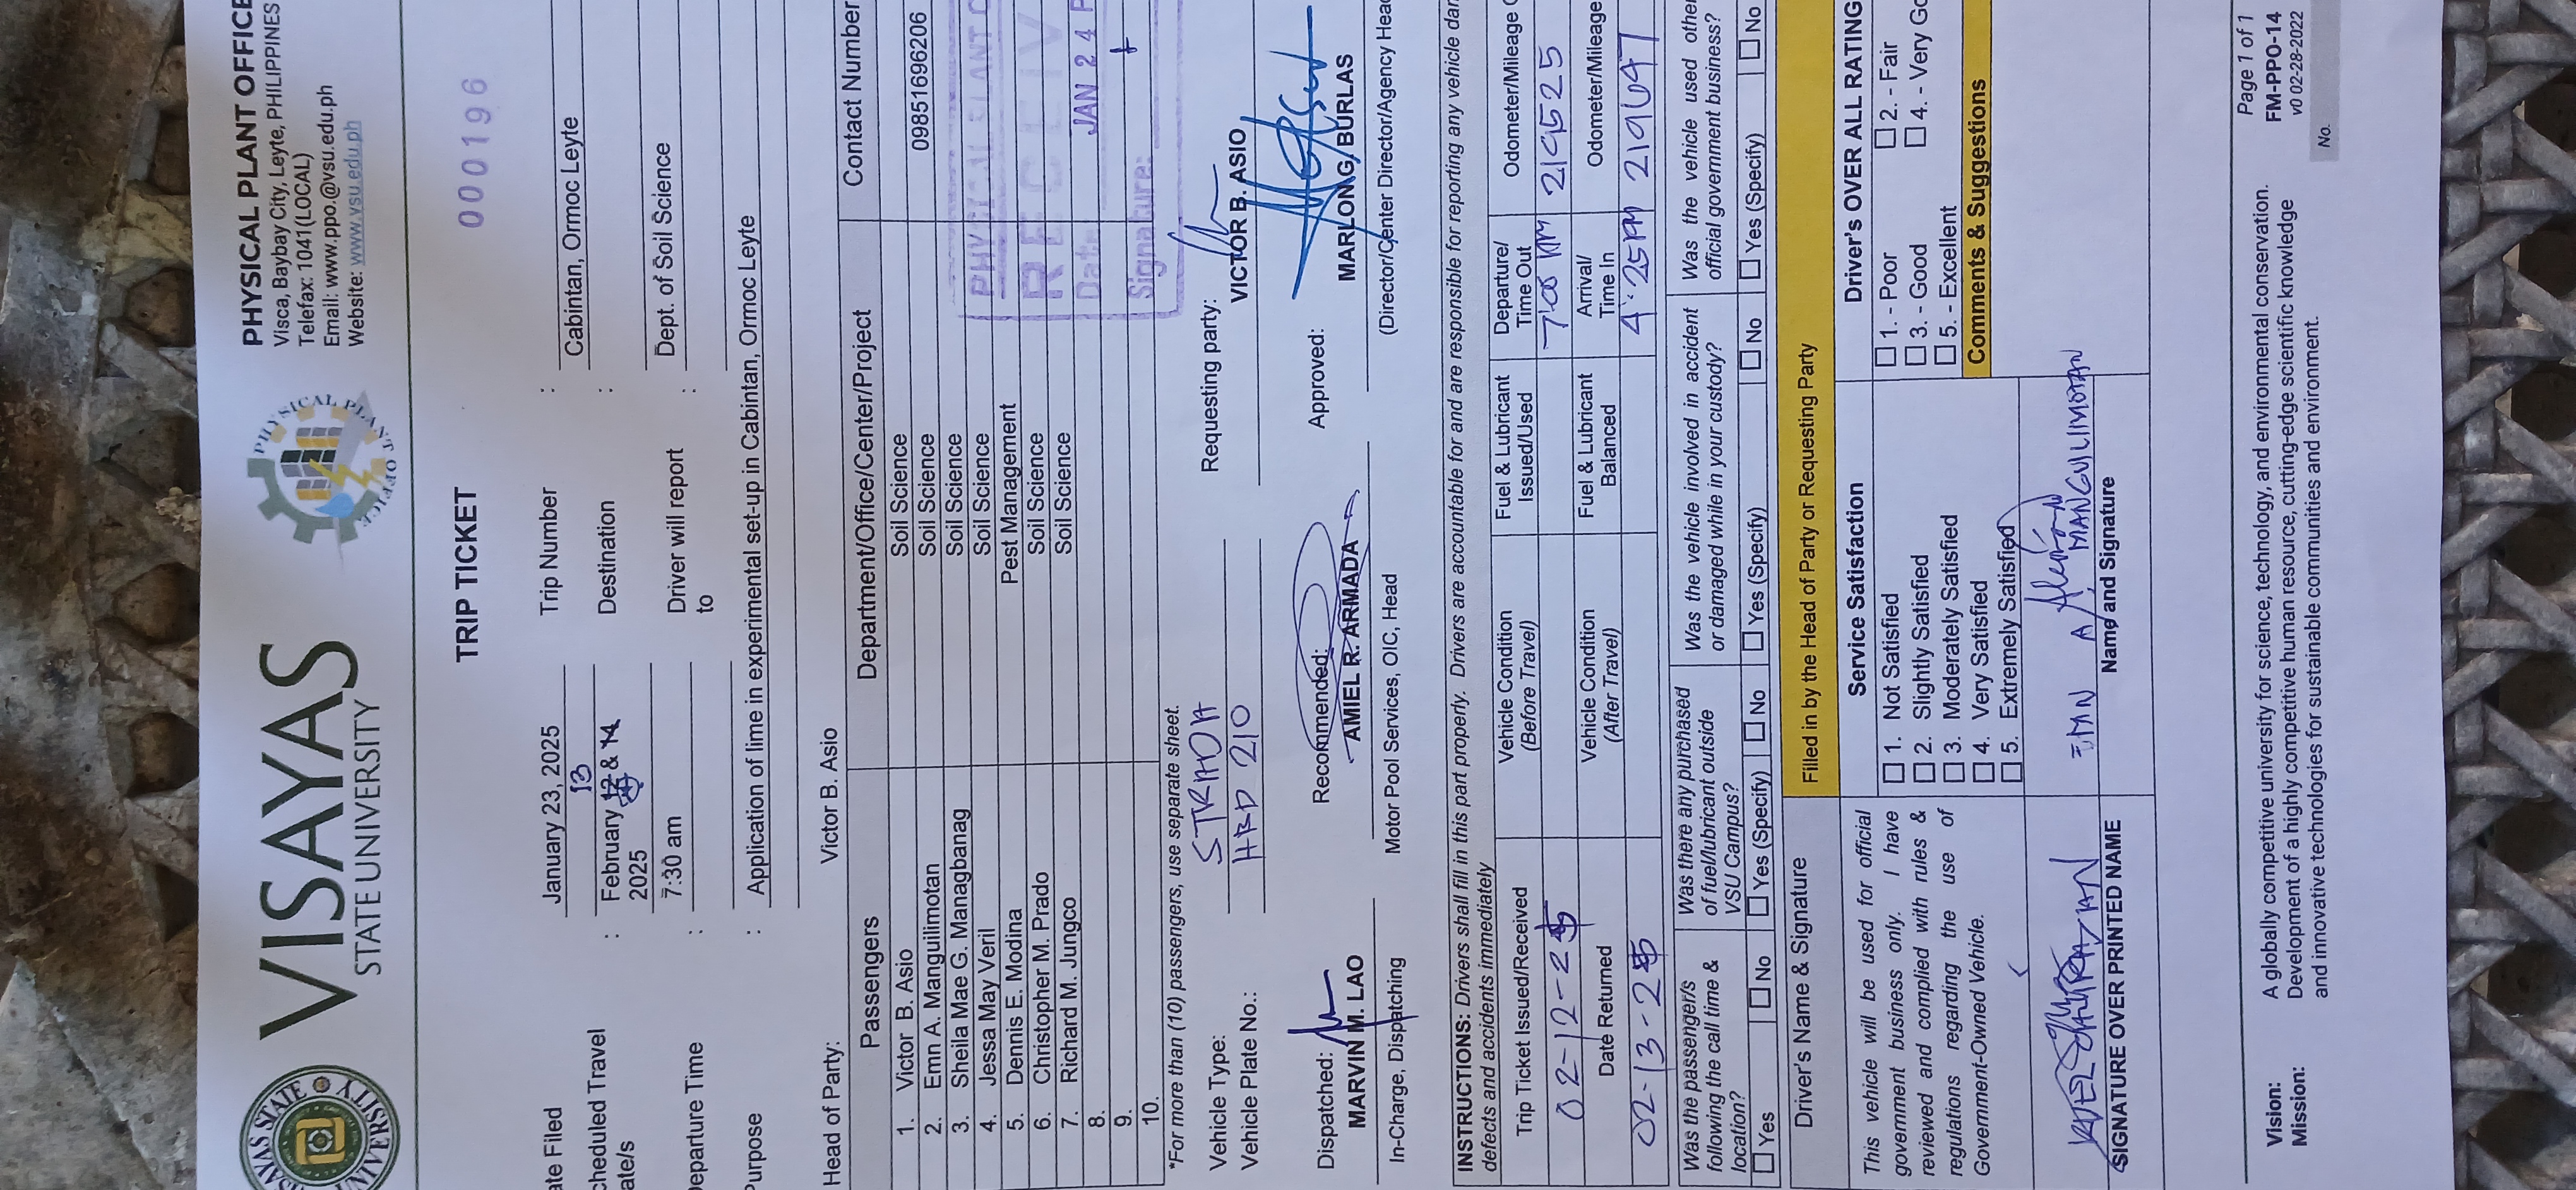 VISAYAS
STATE UNIVERSITY
PHYSICAL PLANT OFFICE
PHYSICAL PLANT OFFICE
Visca, Baybay City, Leyte, PHILIPPINES
Telefax: 1041(LOCAL)
Email: www.ppo@vsu.edu.ph
Website: www.vsu.edu.ph
TRIP TICKET
000196
ate Filed January 23, 2025 Trip Number :
cheduled Travel ate/s : February 13 & 14 2025 Destination : Cabintan, Ormoc Leyte
eparture Time : 7:30 am Driver will report to : Dept. of Soil Science
urpose : Application of lime in experimental set-up in Cabintan, Ormoc Leyte
Head of Party: Victor B. Asio
Passengers Department/Office/Center/Project Contact Number
1. Victor B. Asio Soil Science 09851696206
2. Emn A. Manguilimotan Soil Science
3. Sheila Mae G. Managbanag Soil Science
4. Jessa May Veril Soil Science
5. Dennis E. Modina Pest Management
6. Christopher M. Prado Soil Science
7. Richard M. Jungco Soil Science
8.
9.
10.
PHYSICAL PLANT O
RECEIV
Date: JAN 24
Signature:
*For more than (10) passengers, use separate sheet.
Vehicle Type: STRADA
Vehicle Plate No.: HBD 210
Requesting party:
VICTOR B. ASIO
Dispatched:
MARVIN M. LAO
In-Charge, Dispatching
Recommended:
AMIEL R. ARMADA
Motor Pool Services, OIC, Head
Approved:
MARLON G. BURLAS
(Director/Center Director/Agency Head
INSTRUCTIONS: Drivers shall fill in this part properly. Drivers are accountable for and are responsible for reporting any vehicle dar
defects and accidents immediately
Trip Ticket Issued/Received Vehicle Condition (Before Travel) Fuel & Lubricant Issued/Used Departure/ Time Out Odometer/Mileage
02-12-25 7:00 AM 219525
Date Returned Vehicle Condition (After Travel) Fuel & Lubricant Balanced Arrival/ Time In Odometer/Mileage
02-13-25 4:25PM 219647
Was the passenger/s following the call time & location?
☐ Yes ☐ No
Was there any purchased of fuel/lubricant outside VSU Campus?
☐ Yes (Specify) ☐ No
Was the vehicle involved in accident or damaged while in your custody?
☐ Yes (Specify) ☐ No
Was the vehicle used other official government business?
☐ Yes (Specify) ☐ No
Driver's Name & Signature
This vehicle will be used for official
government business only. I have
reviewed and complied with rules &
regulations regarding the use of
Government-Owned Vehicle.
SIGNATURE OVER PRINTED NAME
Filled in by the Head of Party or Requesting Party
Service Satisfaction
☐ 1. Not Satisfied
☐ 2. Slightly Satisfied
☐ 3. Moderately Satisfied
☐ 4. Very Satisfied
☐ 5. Extremely Satisfied
EMN A. MANGUILIMOTAN
Name and Signature
Driver's OVER ALL RATING
☐ 1. - Poor ☐ 2. - Fair
☐ 3. - Good ☐ 4. - Very Go
☐ 5. - Excellent
Comments & Suggestions
Vision: A globally competitive university for science, technology, and environmental conservation.
Mission: Development of a highly competitive human resource, cutting-edge scientific knowledge
and innovative technologies for sustainable communities and environment.
Page 1 of 1
FM-PPO-14
v0 02-28-2022
No.